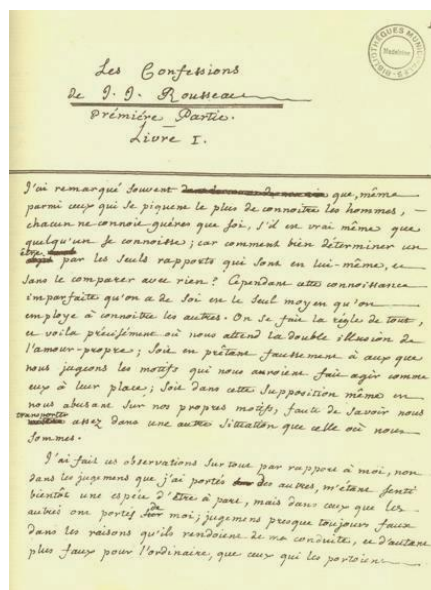 BIBLIOTHÈQUES MUNICIPALES
Les Confessions
de J. J. Rousseau
Prémiére Partie.
Livre I.
J'ai remarqué souvent que, même
parmi ceux qui se piquent le plus de connoitre les hommes,
chacun ne connoit guères que soi, s'il est vrai même que
quelqu'un se connoisse; car comment bien déterminer un
être par les seuls rapports qui sont en lui-même, et
sans le comparer avec rien? Cependant cette connoissance
imparfaite qu'on a de soi est le seul moyen qu'on
employe à connoitre les autres. On se fait la règle de tout,
et voila précisément où nous attend la double illusion de
l'amour-propre; soit en prêtant faussement à ceux que
nous jugeons les motifs qui nous auroient fait agir comme
eux à leur place; soit dans cette supposition même en
nous abusant sur nos propres motifs, faute de savoir nous
transporter assez dans une autre situation que celle où nous
sommes.
J'ai fait ces observations surtout par rapport à moi, non
dans les jugemens que j'ai portés des autres, m'étant senti
bientôt une espéce d'être à part, mais dans ceux que les
autres ont portés de moi; jugemens presque toujours faux
dans les raisons qu'ils rendoient de ma conduite, et d'autant
plus faux pour l'ordinaire, que ceux qui les portoient